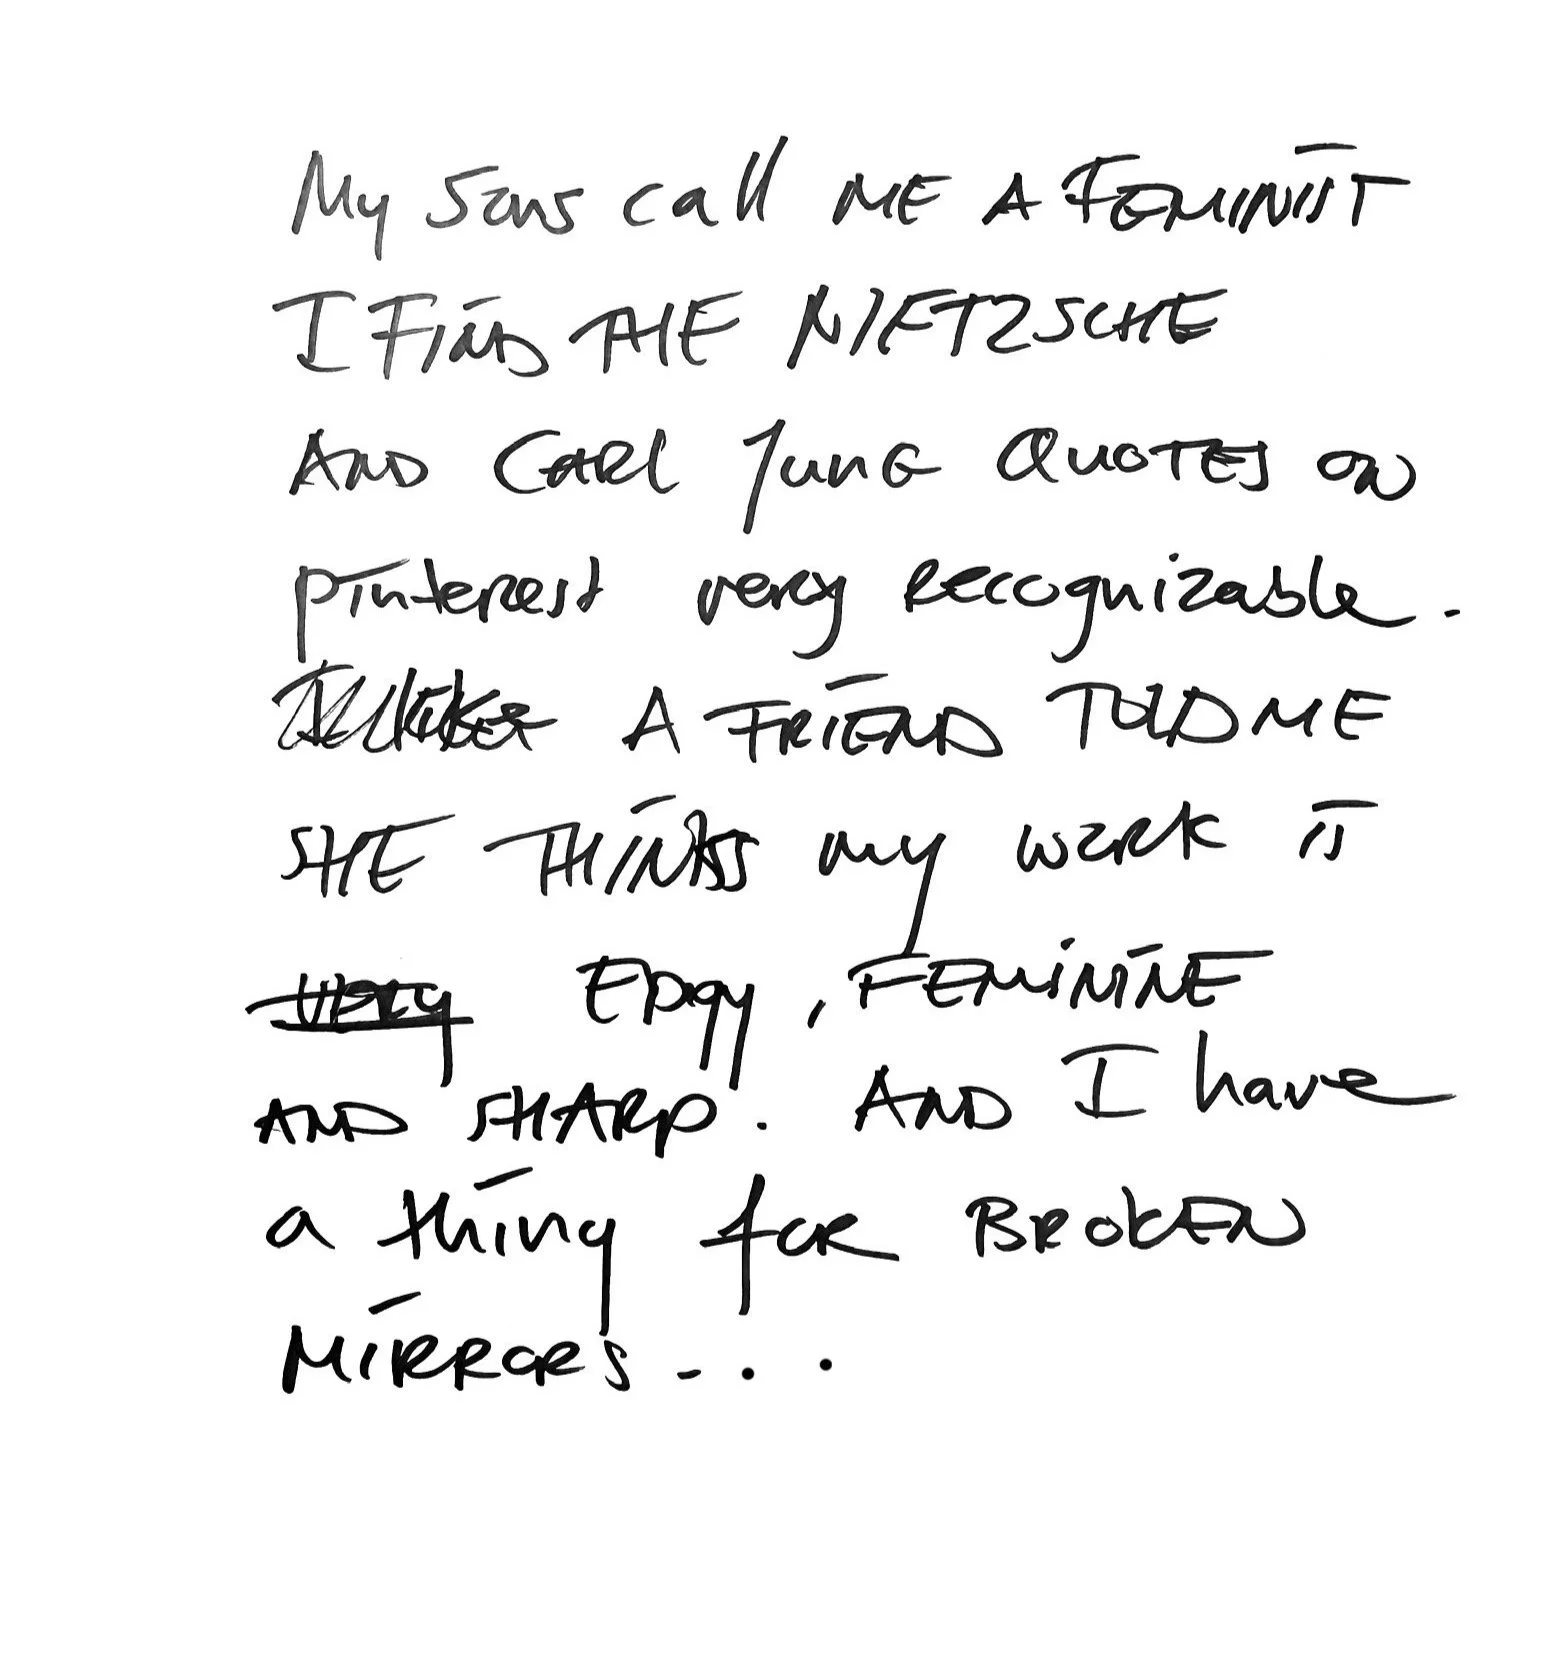 My sons call ME A FEMINIST
I FIND THE NIETZSCHE
AND CARL JUNG QUOTES ON
pinterest very Recognizable.
A FRIEND TOLD ME
SHE THINKS my work is
VERY EDgy, FEMININE
AND SHARP. AND I have
a thing for BROKEN
MIRRORS...